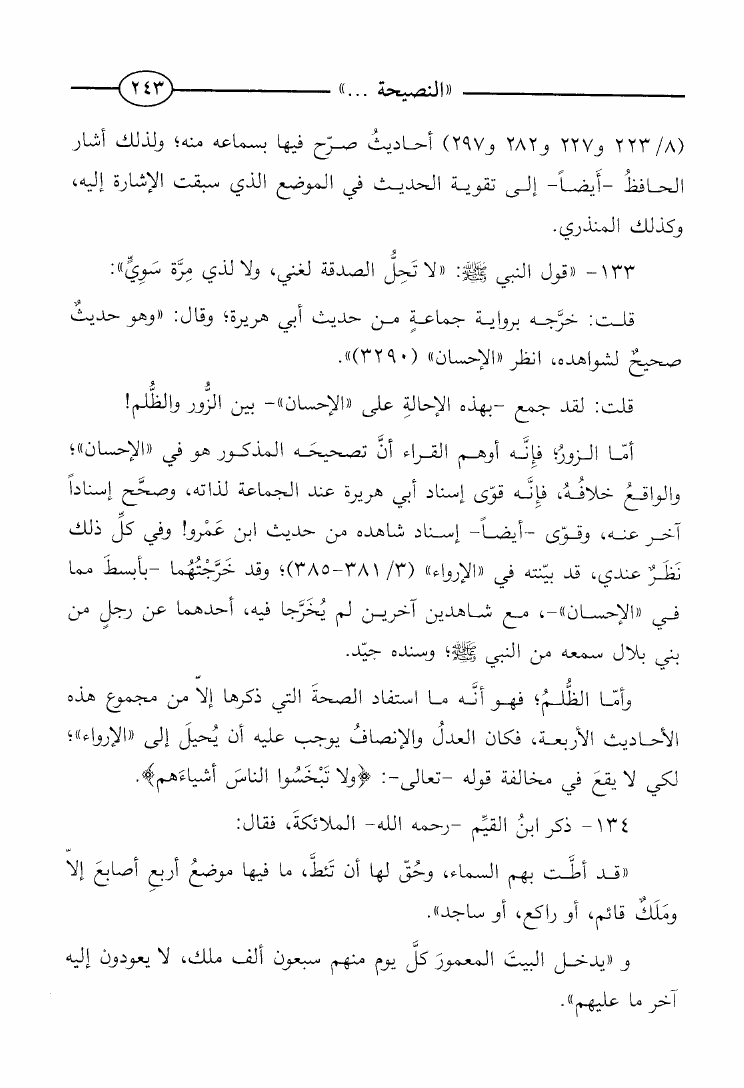 «النصيحة ...» ٢٤٣
(٨/ ٢٢٣ و٢٢٧ و٢٨٢ و٢٩٧) أحاديثُ صرّح فيها بسماعه منه؛ ولذلك أشار
الحافظُ -أيضاً- إلى تقوية الحديث في الموضع الذي سبقت الإشارة إليه،
وكذلك المنذري.
١٣٣- «قول النبي ﷺ: «لا تَحِلُّ الصدقة لغني، ولا لذي مِرَّة سَوِيٍّ»:
قلت: خرَّجه برواية جماعةٍ من حديث أبي هريرة؛ وقال: «وهو حديثٌ
صحيحٌ لشواهده، انظر «الإحسان» (٣٢٩٠)».
قلت: لقد جمع -بهذه الإحالةِ على «الإحسان»- بين الزُّور والظُّلم!
أمّا الزورُ؛ فإنَّه أوهم القراء أنَّ تصحيحَه المذكور هو في «الإحسان»؛
والواقعُ خلافُهُ، فإنَّه قوّى إسناد أبي هريرة عند الجماعة لذاته، وصحَّح إسناداً
آخر عنه، وقوّى -أيضاً- إسناد شاهده من حديث ابن عَمْرو! وفي كلِّ ذلك
نَظَرٌ عندي، قد بيّنته في «الإرواء» (٣/ ٣٨١-٣٨٥)؛ وقد خَرَّجْتُهُما -بأبسطَ مما
في «الإحسان»-، مع شاهدين آخرين لم يُخَرَّجا فيه، أحدهما عن رجلٍ من
بني بلال سمعه من النبي ﷺ؛ وسنده جيّد.
وأمّا الظُّلمُ؛ فهو أنَّه ما استفاد الصحةَ التي ذكرها إلاّ من مجموع هذه
الأحاديث الأربعة، فكان العدلُ والإنصافُ يوجب عليه أن يُحيلَ إلى «الإرواء»؛
لكي لا يقعَ في مخالفة قوله -تعالى-: ﴿ولا تَبْخَسُوا الناسَ أشياءَهم﴾.
١٣٤- ذكر ابنُ القيِّم -رحمه الله- الملائكةَ، فقال:
«قد أطَّت بهم السماء، وحُقّ لها أن تَئطَّ، ما فيها موضعُ أربعِ أصابعَ إلاّ
ومَلَكٌ قائم، أو راكع، أو ساجد».
و «يدخل البيتَ المعمورَ كلَّ يوم منهم سبعون ألف ملك، لا يعودون إليه
آخر ما عليهم».